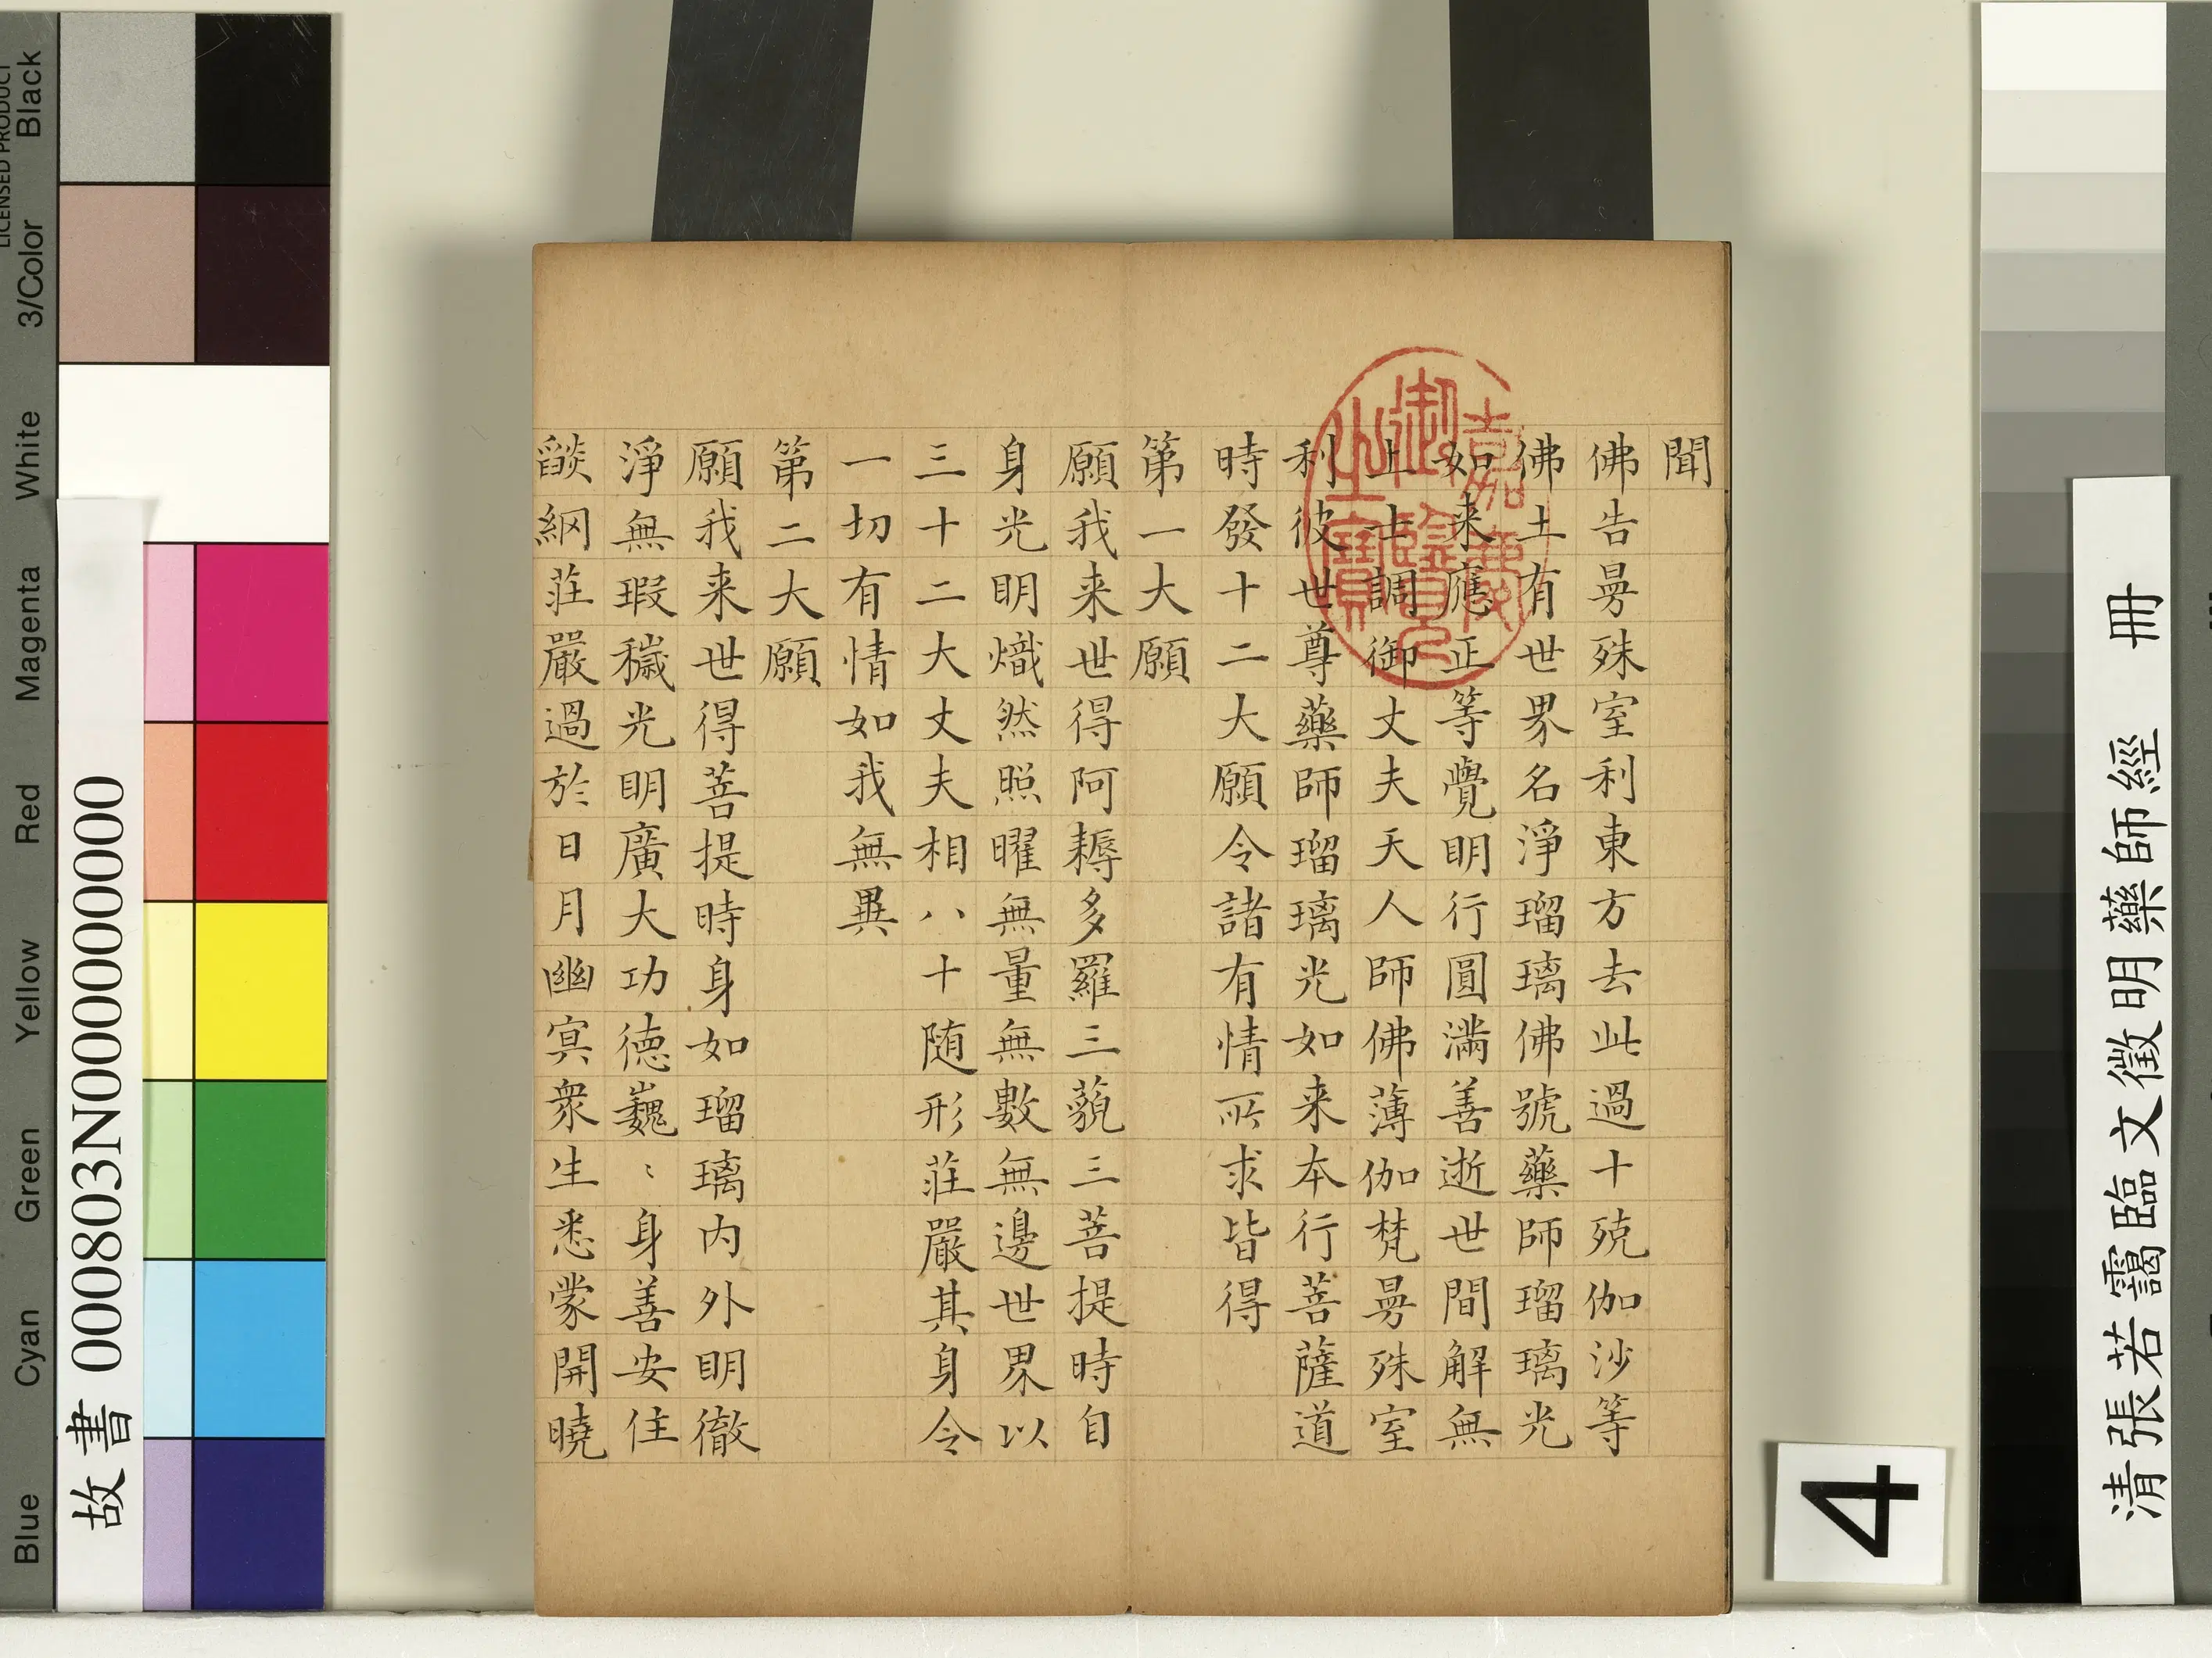 聞
佛告曼殊室利東方去此過十殑伽沙等
佛土有世界名淨瑠璃佛號藥師瑠璃光
如来應正等覺明行圓滿善逝世間解無
上士調御丈夫天人師佛薄伽梵曼殊室
利彼世尊藥師瑠璃光如来本行菩薩道
時發十二大願令諸有情所求皆得
第一大願
願我来世得阿耨多羅三藐三菩提時自
身光明熾然照曜無量無數無邊世界以
三十二大丈夫相八十随形莊嚴其身令
一切有情如我無異
第二大願
願我来世得菩提時身如瑠璃内外明徹
淨無瑕穢光明廣大功德巍〻身善安住
燄網莊嚴過於日月幽冥衆生悉蒙開曉
嘉慶
御覽
之寶
清張若靄臨文徵明藥師經 冊
4
故書 000803N000000000
Blue Cyan Green Yellow Red Magenta White 3/Color Black
LICENSED PRODUCT